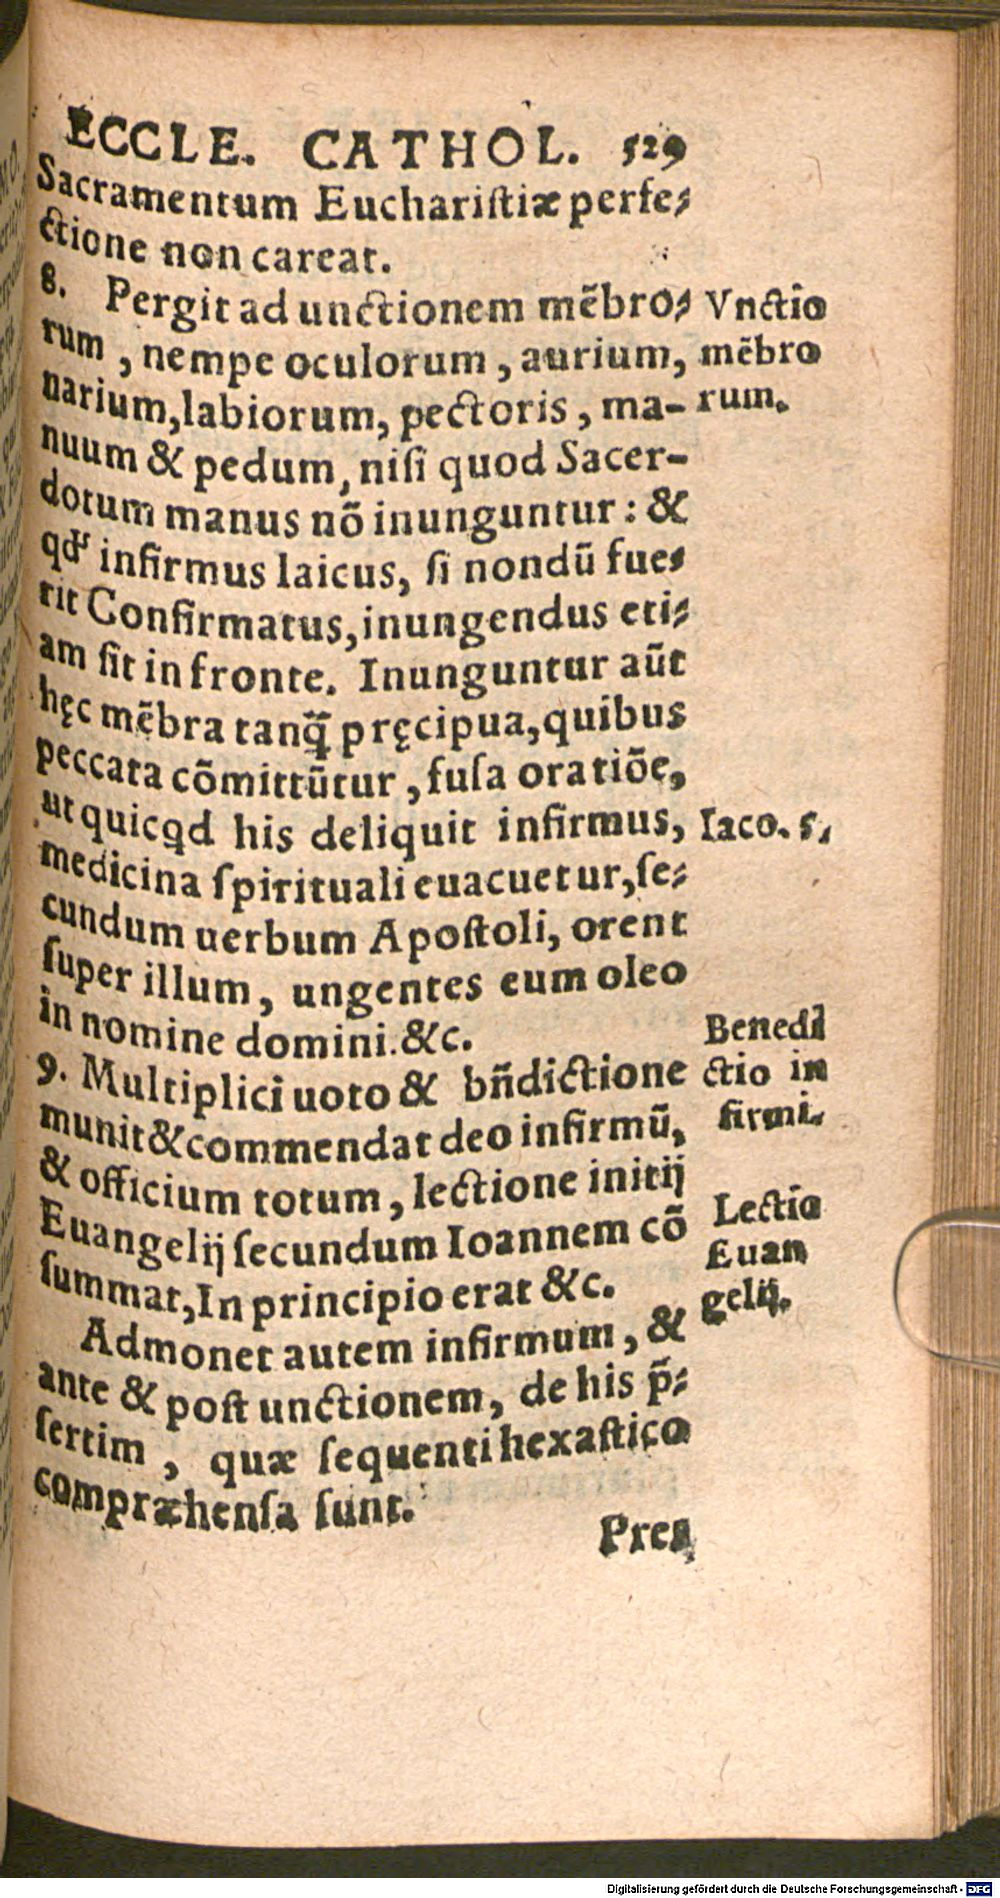 ECCLE. CATHOL. 529
Sacramentum Euchariſtiæ perfe-
ctione non careat.
8. Pergit ad unctionem mẽbro-
rum, nempe oculorum, aurium,
narium, labiorum, pectoris, ma-
nuum & pedum, niſi quod Sacer-
dotum manus nõ inunguntur: &
qđ infirmus laicus, ſi nondũ fue-
rit Confirmatus, inungendus eti-
am ſit in fronte. Inunguntur aũt
hęc mẽbra tanq̃ pręcipua, quibus
peccata cõmittũtur, fuſa oratiõe,
ut quicqd his deliquit infirmus,
medicina ſpirituali euacuetur, ſe-
cundum uerbum Apoſtoli, orent
ſuper illum, ungentes eum oleo
in nomine domini. &c.
9. Multiplici uoto & bñdictione
munit & commendat deo infirmũ,
& officium totum, lectione initij
Euangelij ſecundum Ioannem cõ
ſummat, In principio erat &c.
Admonet autem infirmum, &
ante & poſt unctionem, de his p̃-
ſertim, quæ ſequenti hexaſtico
compræhenſa ſunt.
Pres
Vnctio
mẽbro
rum.
Iaco. 5.
Benedi
ctio in
firmi.
Lectio
Euan
gelij.
Digitalisierung gefördert durch die Deutsche Forschungsgemeinschaft - DFG